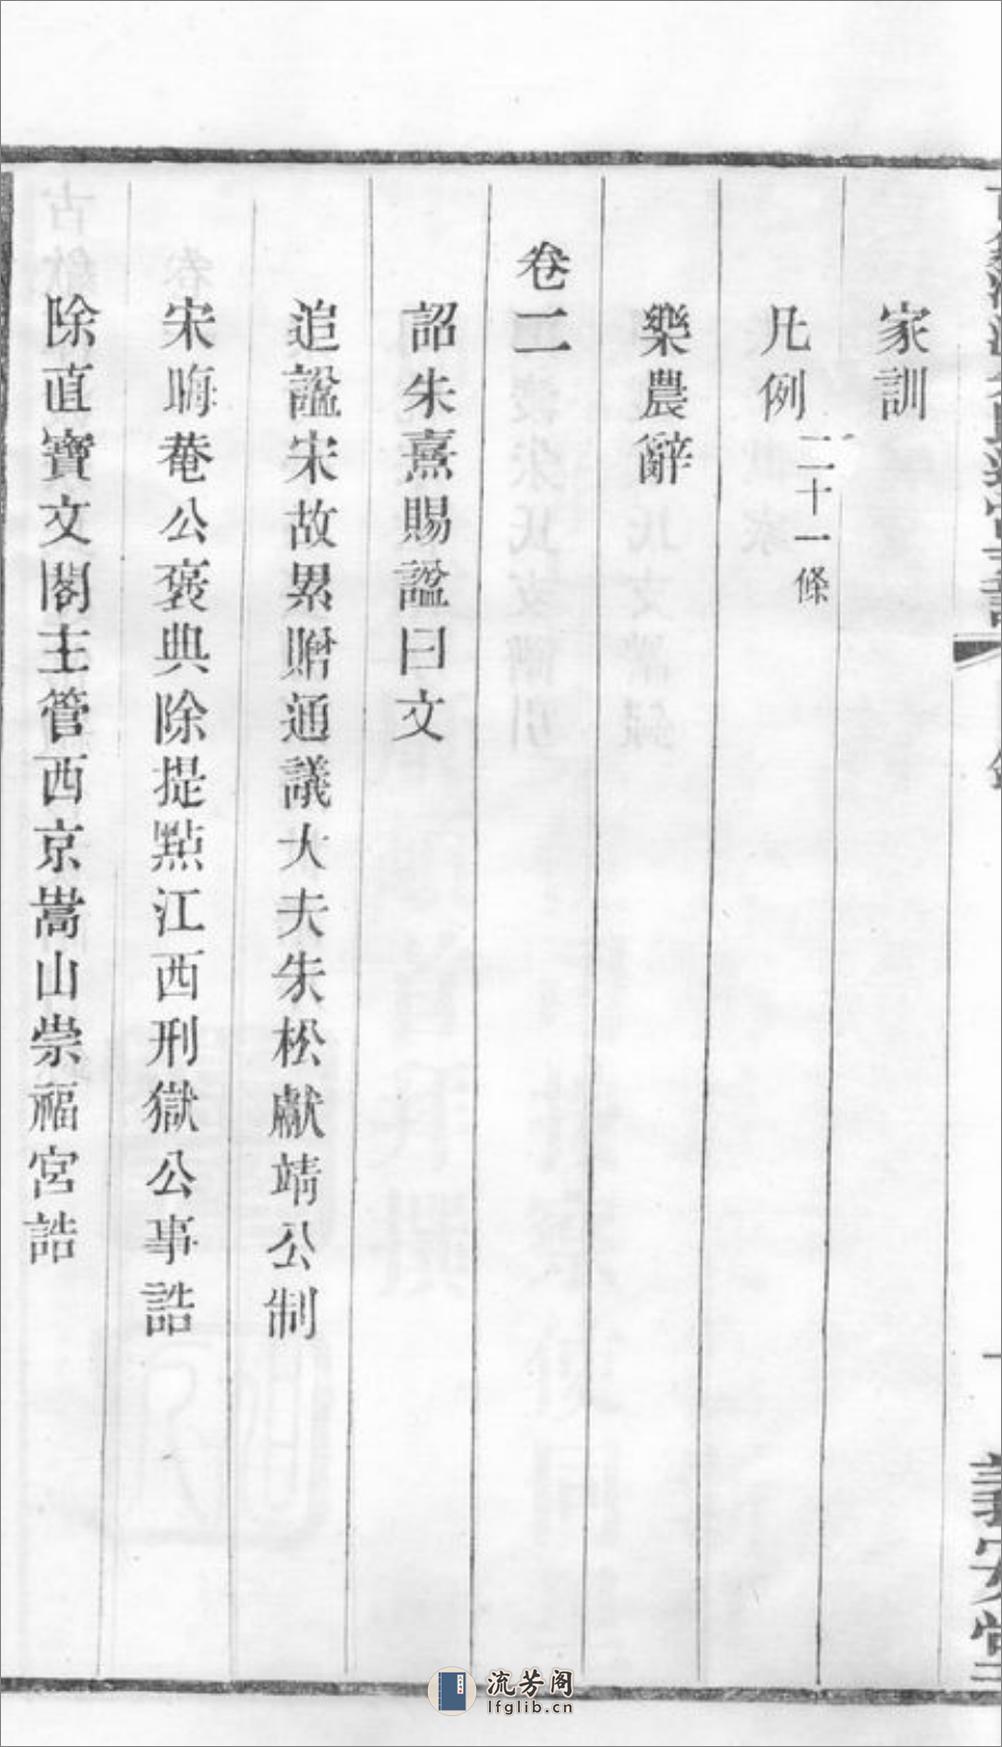 家訓
凡例 二十一條
樂農辭
卷二
詔朱熹賜諡曰文
追諡宋故累贈通議大夫朱松獻靖公制
宋晦菴公褒典除提點江西刑獄公事誥
除直寶文閣主管西京嵩山崇福宮誥
義安堂
流芳阁
lfglib.cn